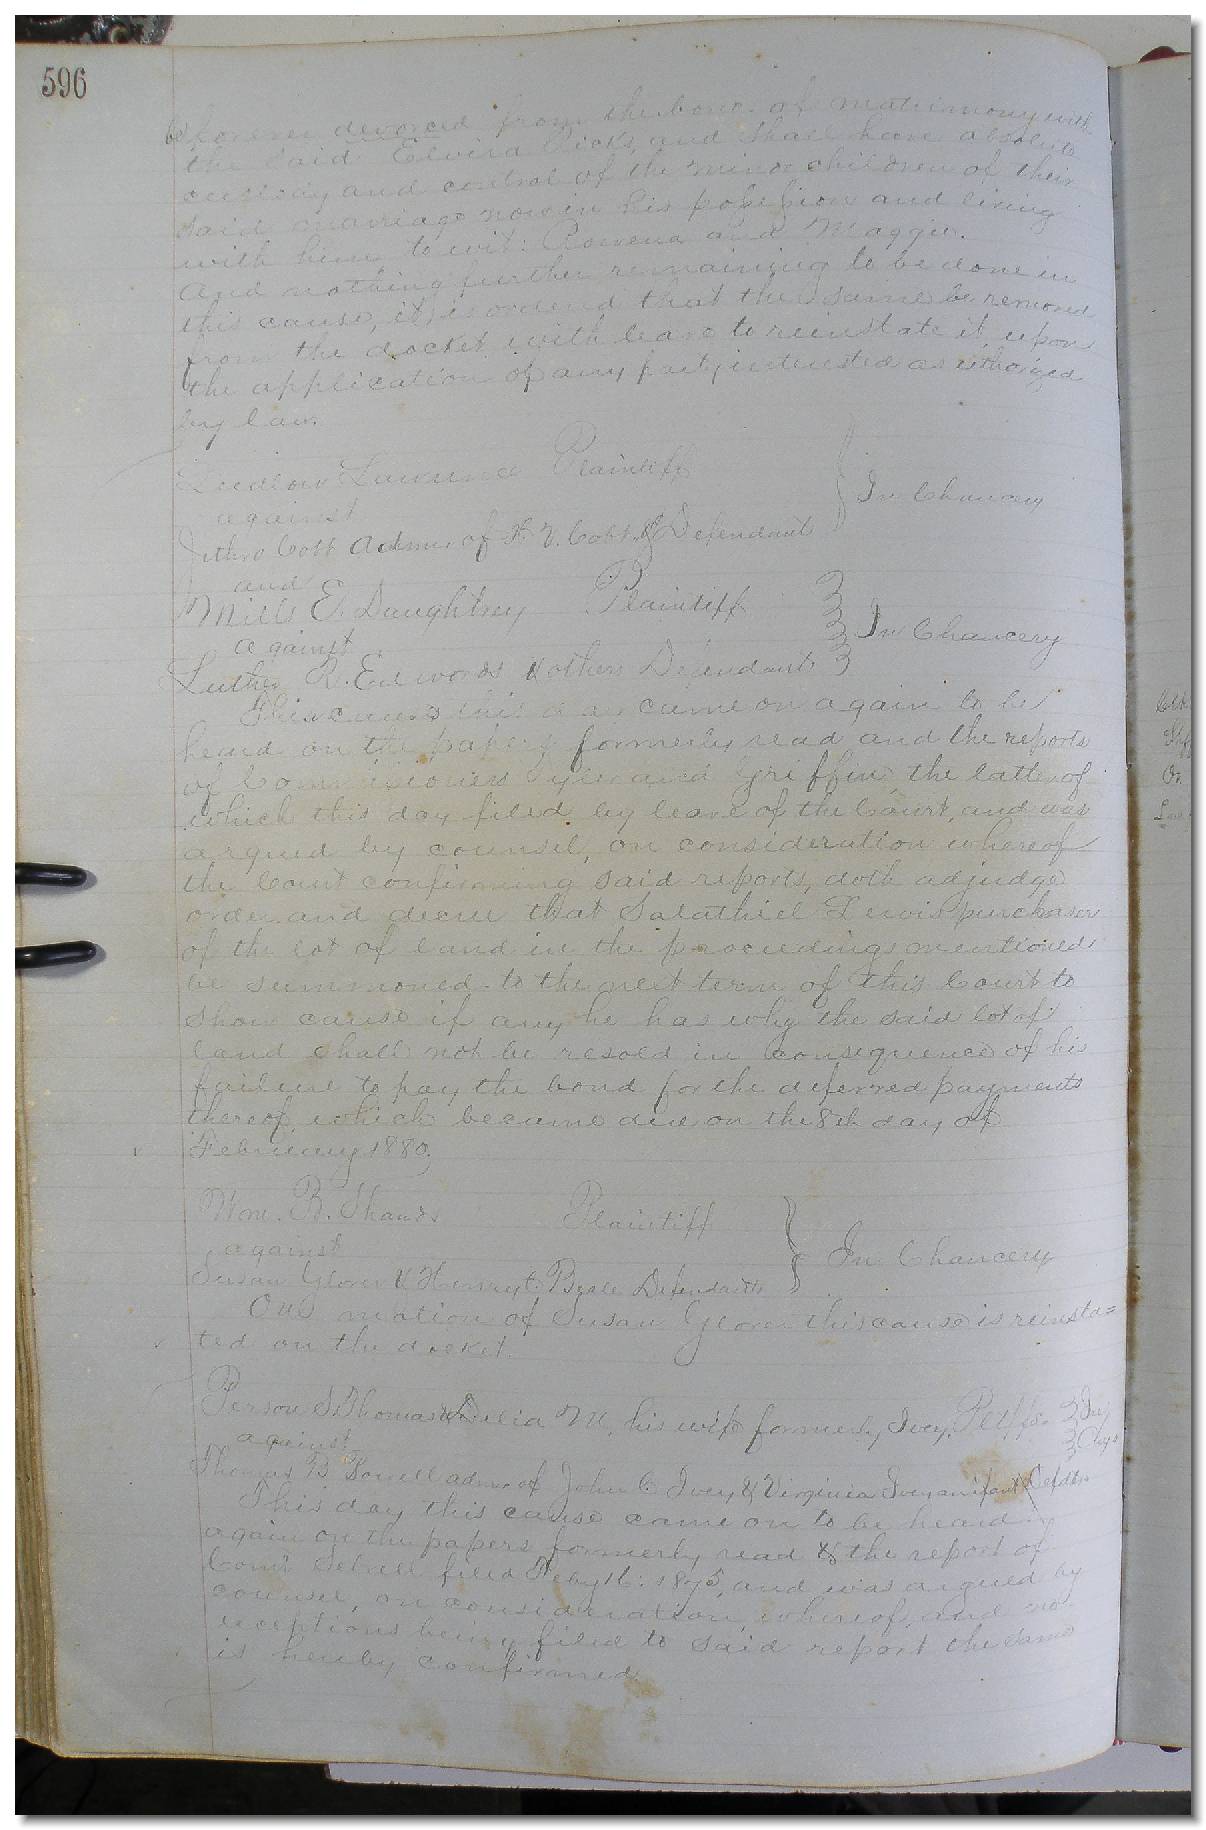 596
be forever devorced from the bond of matrimony with
the said Elvira Ricks, and shall have absolute
custody and control of the minor children of their
said marriage now in his possession and living
with him to wit: Rowena and Maggie.
And nothing further remaining to be done in
this cause, it is orderd that the same be removed
from the docket with leave to reinstate it upon
the application of any party interested as authorized
by law.
Ludlow Lawrence Plaintiff
against
In Chancery
Jethro Cobb Admr of Cobb & Defendant
and
Mills E. Daughtrey Plaintiff
against
In Chancery
Luther R. Edwards & others Defendants
This cause this day came on again to be
heard on the papers formerly read and the reports
of Commissioners Tyler and Griffin, the latter of
which this day filed by leave of the Court, and was
argued by counsel, on consideration whereof
the Court confirming said reports, doth adjudge
order and decree that Salathiel Lewis purchaser
of the lot of land in the proceedings mentioned
be summoned to the next term of this Court to
show cause if any he has why the said lot of
land shall not be resold in consequence of his
failure to pay the bond for the deferred payments
thereof which became due on the 8th day of
February 1880.
Wm. B. Shands Plaintiff
against
In Chancery
Susan Glover & Henry Beale Defendants
On motion of Susan Glover this cause is reinsta=
ted on the docket.
Person S. Thomas & Delia M, his wife formerly Ivey, Pltffs.
against
Thomas B Powell admr of John C Ivey & Virginia Ivey an infant Defdts
This day this cause came on to be heard
again on the papers formerly read & the report of
Comr Sebrell filed Feby 16: 1875, and was argued by
counsel, on consideration whereof, and no
exceptions being filed to said report the same
is hereby confirmed